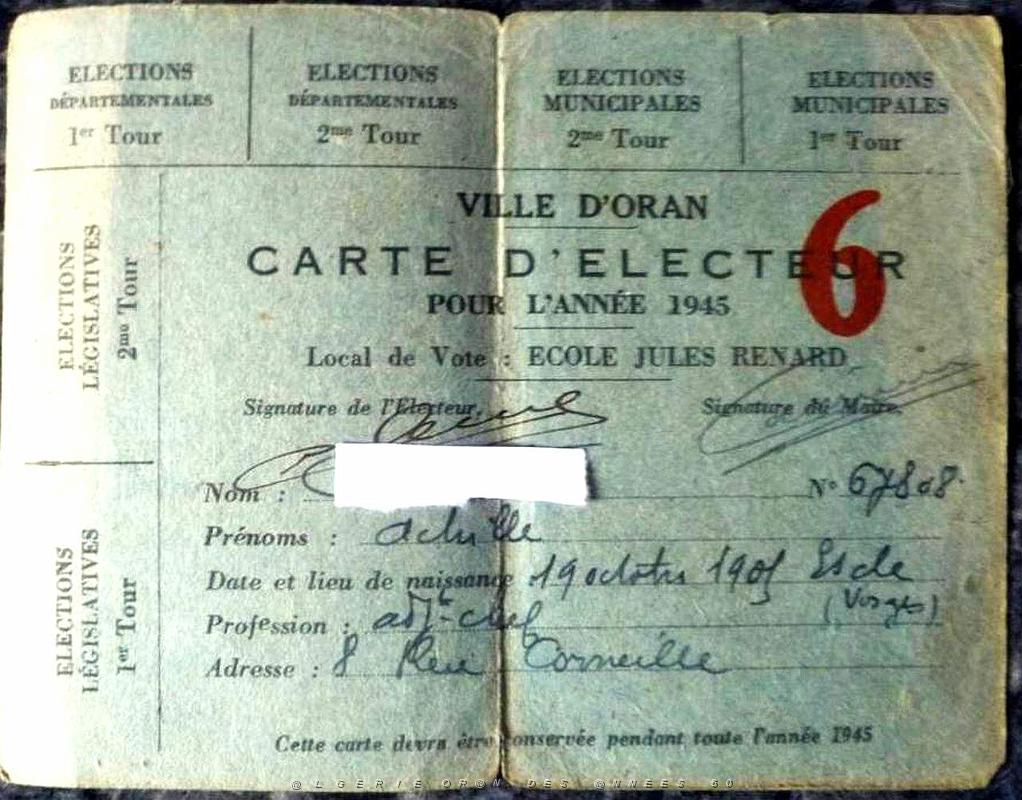 ELECTIONS
DÉPARTEMENTALES
1er Tour
ELECTIONS
DÉPARTEMENTALES
2me Tour
ELECTIONS
MUNICIPALES
2me Tour
ELECTIONS
MUNICIPALES
1er Tour
ELECTIONS
LÉGISLATIVES
2me Tour
ELECTIONS
LÉGISLATIVES
1er Tour
VILLE D'ORAN
6
CARTE D'ELECTEUR
POUR L'ANNÉE 1945
Local de Vote : ECOLE JULES RENARD
Signature de l'Electeur, Signature du Maire,
Nom : N° 67808
Prénoms : achille
Date et lieu de naissance 19 octobre 1905 Escle
(Vosges)
Profession : adjt-chef
Adresse : 8 Rue Corneille
Cette carte devra être conservée pendant toute l'année 1945
@LGERIE OR@N DES @NNEES 50